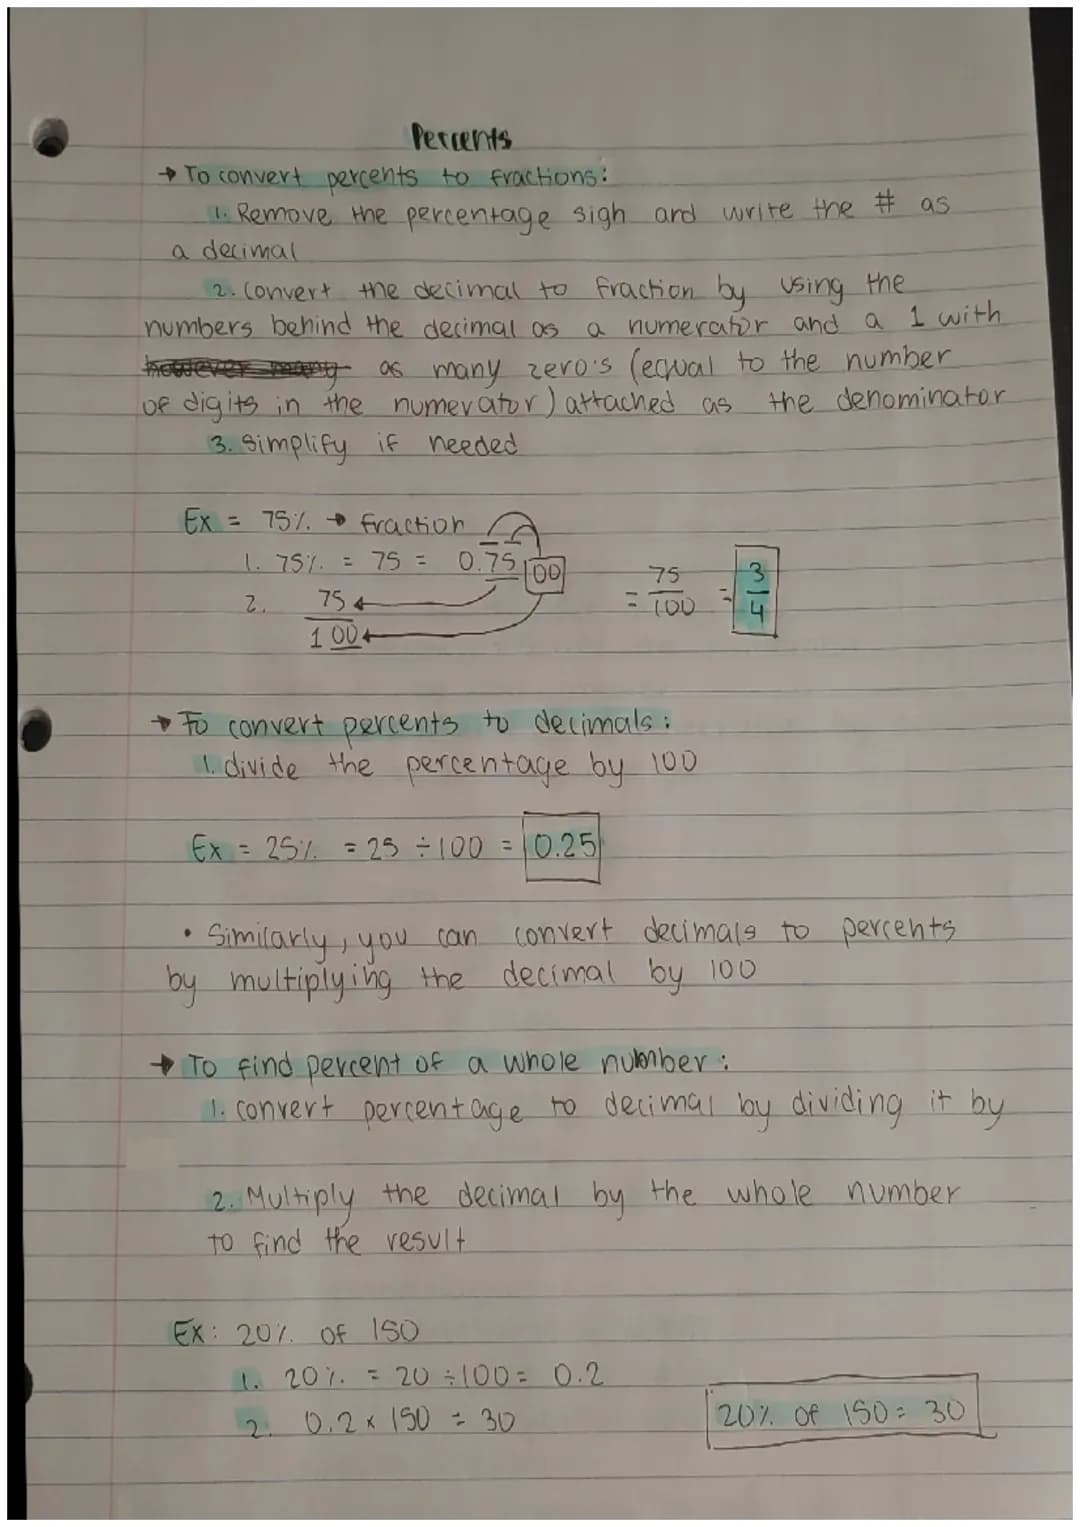 Percents
→ To convert percents to fractions:
1. Remove the percentage sigh and write the # as
a decimal
2. Convert the decimal to fraction by using the
numbers behind the decimal as a numerator and a 1 with
however many as many zero's (equal to the number
of digits in the numerator) attached as the denominator
3. Simplify if needed
Ex = 75% → fraction
1. 75% = 75 = 0.75 00
2. 75
100
= 75/100 = 3/4
→ To convert percents to decimals:
1. divide the percentage by 100
Ex = 25% = 25 ÷ 100 = 0.25
• Similarly, you can convert decimals to percents
by multiplying the decimal by 100
→ To find percent of a whole number:
1. convert percentage to decimal by dividing it by
2. Multiply the decimal by the whole number
to find the result
Ex: 20% of 150
1. 20% = 20 ÷ 100 = 0.2
2. 0.2 × 150 = 30
20% of 150 = 30